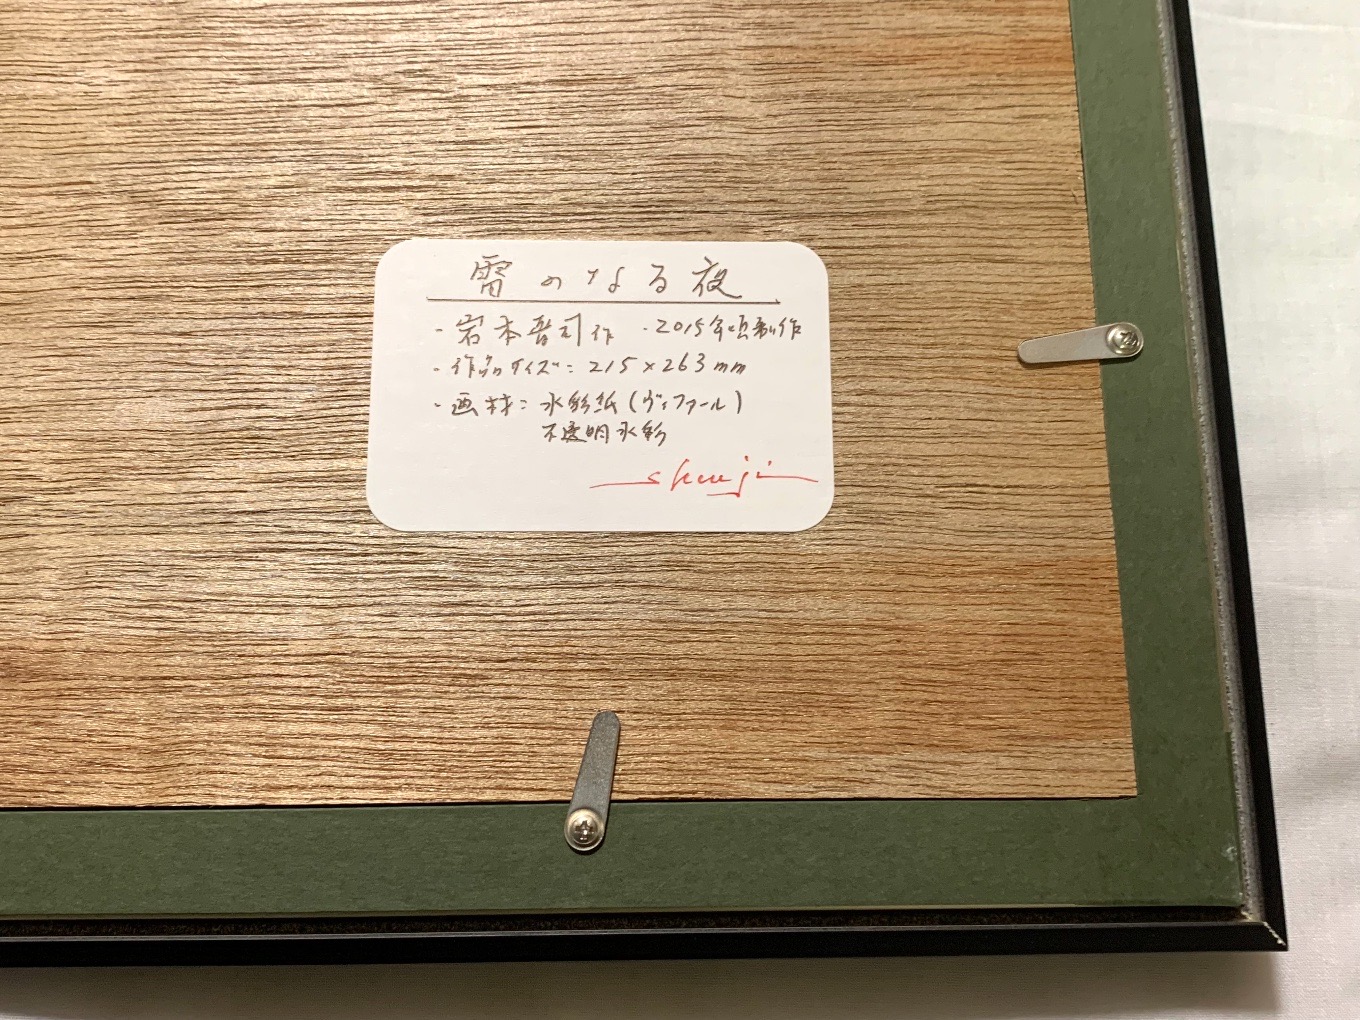 雷のなる夜
・岩本晋司作 ・2015年頃制作
・作品サイズ：215×263mm
・画材：水彩紙(ヴィファール)
不透明水彩
shinji